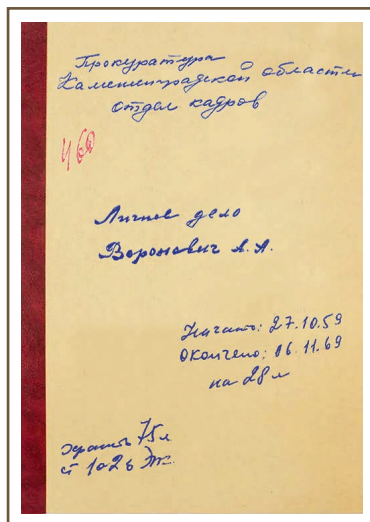 Прокуратура
Калининградской области
отдел кадров
460
Личное дело
Воронович А. А.
Начато: 27.10.59
Окончено: 06.11.69
на 28 л
хранить 75 л
ст 102 б